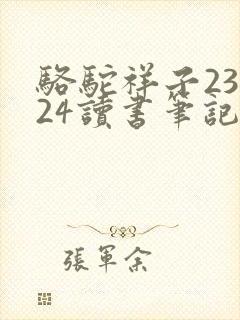 駱駝祥子23
24讀書筆記
張軍余